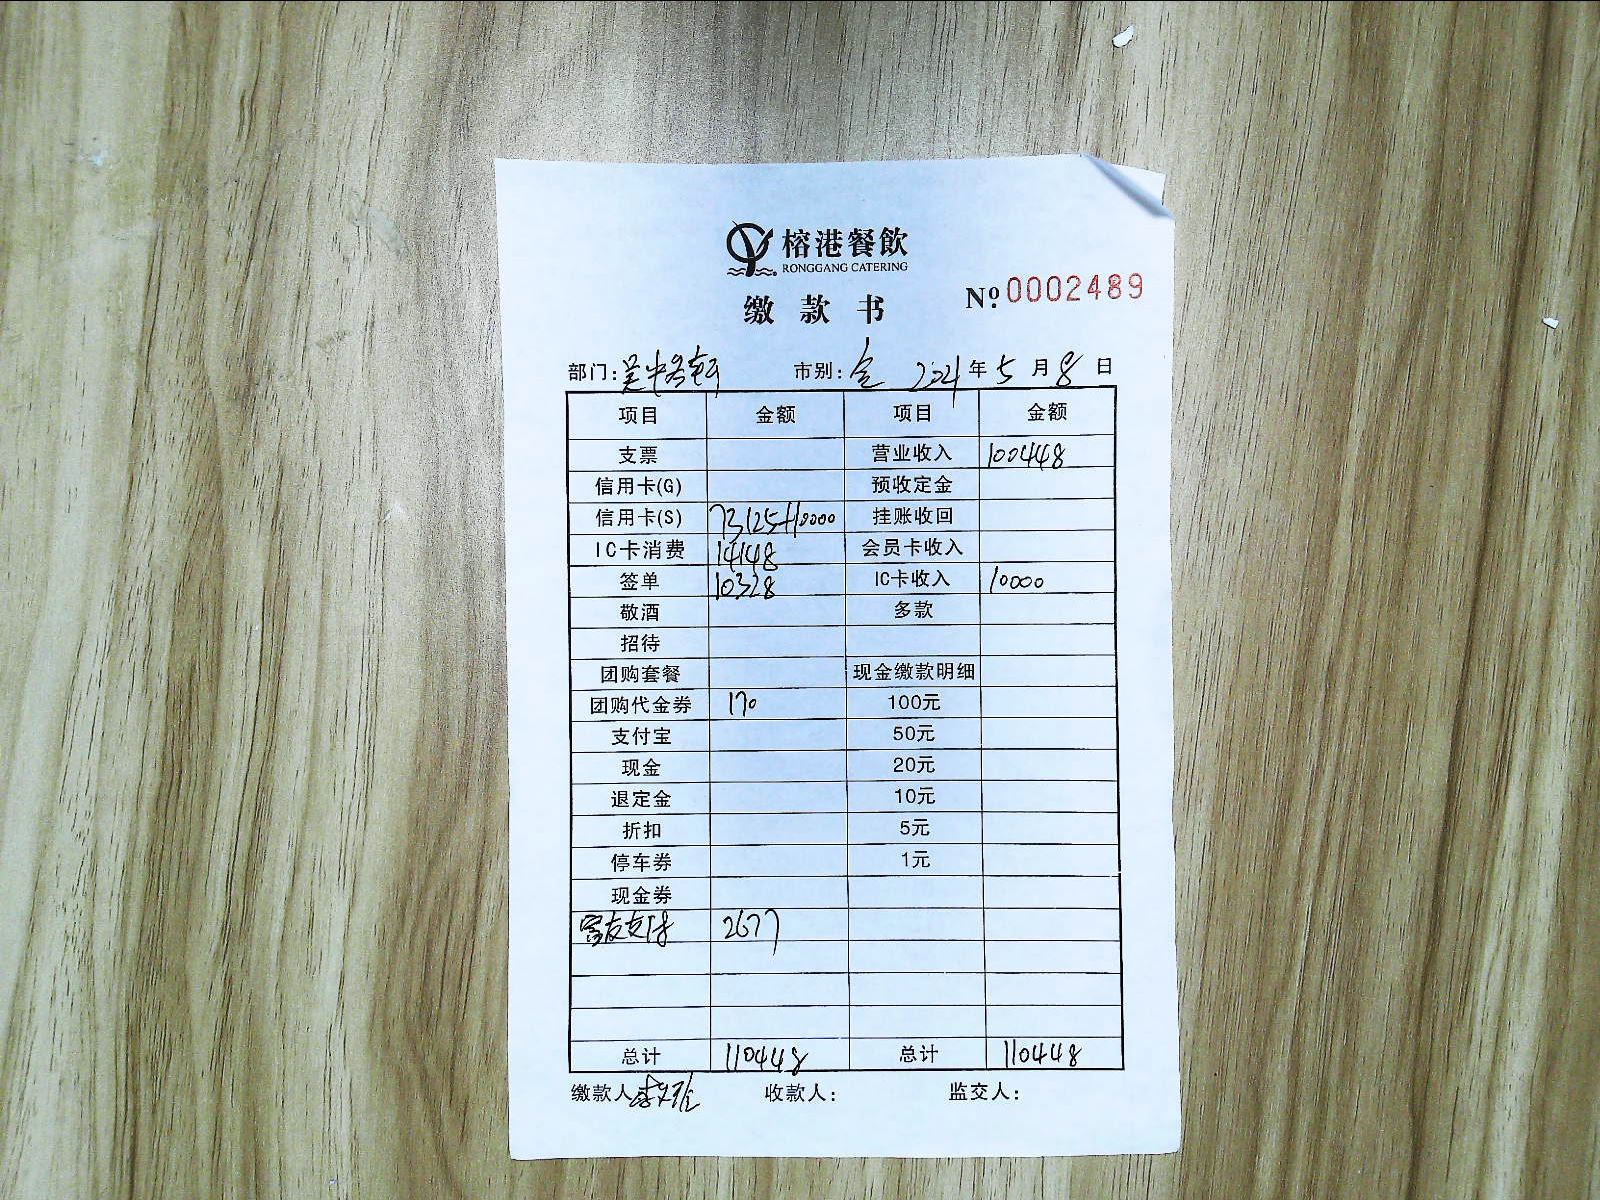 榕港餐飲
RONGGANG CATERING
缴款书 № 0002489
部门: 市别: 全 2024年5月8日
项目 金额 项目 金额
支票 营业收入 100448
信用卡(G) 预收定金
信用卡(S) 73125+10000 挂账收回
IC卡消费 14148 会员卡收入
签单 10328 IC卡收入 10000
敬酒 多款
招待
团购套餐 现金缴款明细
团购代金券 170 100元
支付宝 50元
现金 20元
退定金 10元
折扣 5元
停车券 1元
现金券
支付 2677
总计 110448 总计 110448
缴款人 收款人: 监交人: